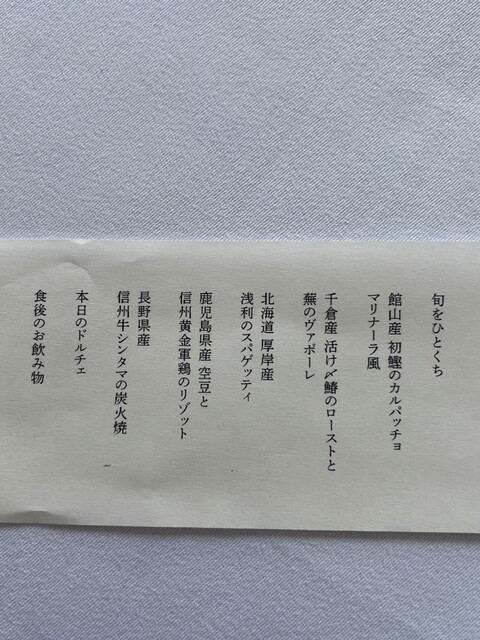 旬をひとくち
館山産 初鰹のカルパッチョ
マリナーラ風
千倉産 活け〆鰆のローストと
蕪のヴァポーレ
北海道 厚岸産
浅利のスパゲッティ
鹿児島県産 空豆と
信州黄金軍鶏のリゾット
長野県産
信州牛シンタマの炭火焼
本日のドルチェ
食後のお飲み物